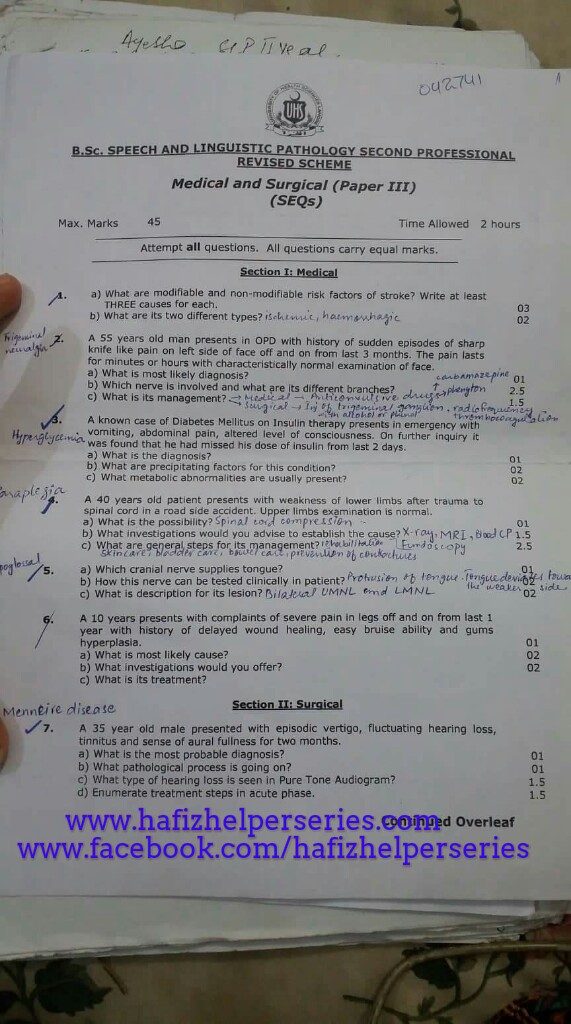 Ayesha
042741
UHS
B.Sc. SPEECH AND LINGUISTIC PATHOLOGY SECOND PROFESSIONAL
REVISED SCHEME
Medical and Surgical (Paper III)
(SEQs)
Max. Marks 45 Time Allowed 2 hours
Attempt all questions. All questions carry equal marks.
Section I: Medical
1. a) What are modifiable and non-modifiable risk factors of stroke? Write at least
THREE causes for each. 03
b) What are its two different types? ischemic, haemorrhagic 02
Trigeminal
neuralgia
2. A 55 years old man presents in OPD with history of sudden episodes of sharp
knife like pain on left side of face off and on from last 3 months. The pain lasts
for minutes or hours with characteristically normal examination of face.
a) What is most likely diagnosis? carbamazepine 01
b) Which nerve is involved and what are its different branches? 2.5
c) What is its management? → Medical → Anticonvulsive drugs 1.5
→ Surgical → Inj of trigeminal ganglion, radiofrequency
with alcohol or phenol
3. A known case of Diabetes Mellitus on Insulin therapy presents in emergency with
Hyperglycemia
vomiting, abdominal pain, altered level of consciousness. On further inquiry it
was found that he had missed his dose of insulin from last 2 days.
a) What is the diagnosis? 01
b) What are precipitating factors for this condition? 02
c) What metabolic abnormalities are usually present? 02
4. A 40 years old patient presents with weakness of lower limbs after trauma to
spinal cord in a road side accident. Upper limbs examination is normal.
a) What is the possibility? Spinal cord compression 01
b) What investigations would you advise to establish the cause? X-ray, MRI, Blood CP 1.5
c) What are general steps for its management? rehabilitation Fundoscopy 2.5
skincare, bladder care, bowel care, prevention of contractures
5. a) Which cranial nerve supplies tongue? 01
b) How this nerve can be tested clinically in patient? Protrusion of tongue. Tongue deviates 02
the weaker side
c) What is description for its lesion? Bilateral UMNL and LMNL 02
6. A 10 years presents with complaints of severe pain in legs off and on from last 1
year with history of delayed wound healing, easy bruise ability and gums
hyperplasia. 01
a) What is most likely cause? 02
b) What investigations would you offer? 02
c) What is its treatment?
Section II: Surgical
Menneire disease
7. A 35 year old male presented with episodic vertigo, fluctuating hearing loss,
tinnitus and sense of aural fullness for two months.
a) What is the most probable diagnosis? 01
b) What pathological process is going on? 01
c) What type of hearing loss is seen in Pure Tone Audiogram? 1.5
d) Enumerate treatment steps in acute phase. 1.5
Continued Overleaf
www.hafizhelperseries.com
www.facebook.com/hafizhelperseries